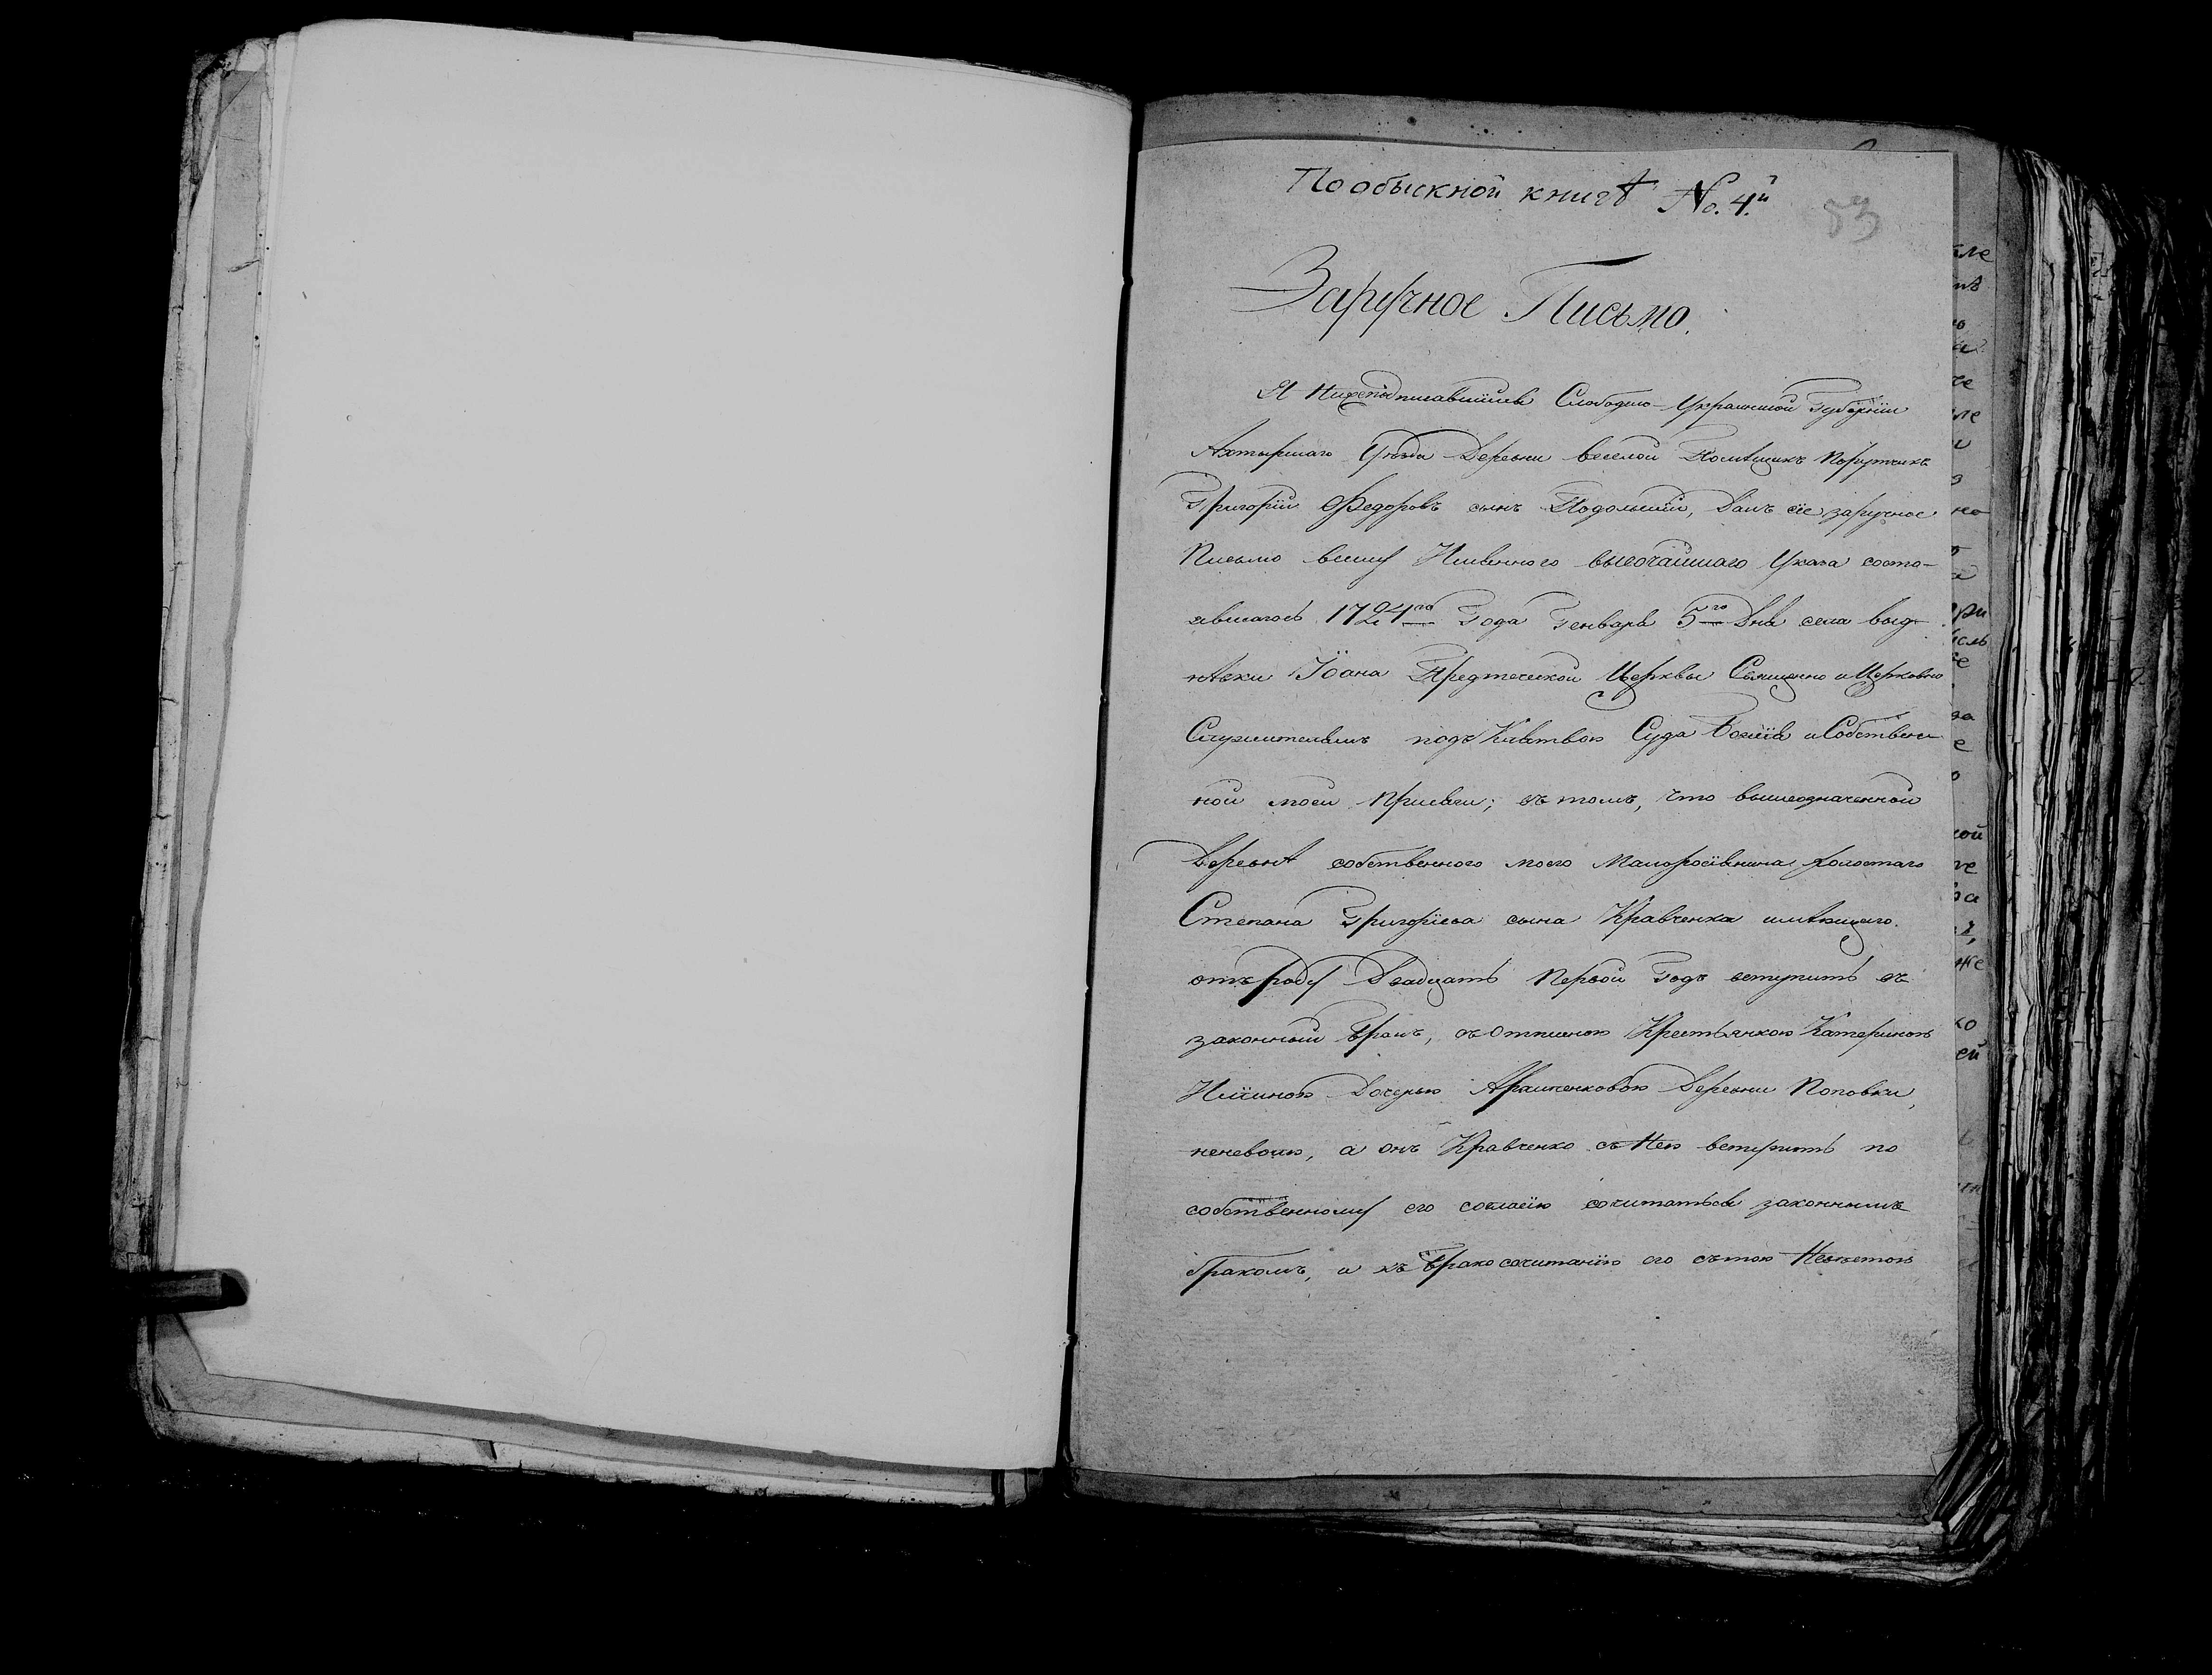 По обыскной книгѣ No. 4.й
53
Заручное Письмо.
Я Нижеподписавшійся Слободско-Украинской Губерніи
Ахтырскаго Уѣзда Деревни веселой Помѣщикъ Порутчикъ
Григорій Федоровъ сынъ Подольскій, Далъ сіе заручное
Письмо всилу Имянного высочайшаго Указа состо-
явшагось 1724го Года Генваря 5го Дня села
Іоана Предтеческой Церквы Священно и Церковно
Служителямъ подъ Клятвою Суда Божія и Собствен-
ной моей присяги; въ томъ, что вышеозначенной
Деревнѣ собственного моего Малоросіянина холостаго
Степана Григоріева сына Кравченка имѣющаго
отъ роду Двадцать Первой Годъ вступить въ
законный бракъ, съ Крестьянкою Катериною
Дочерью Деревни Поповки,
неневолю, а онъ Кравченко съ Нею вступить по
собственному его согласію сочитаться законнымъ
бракомъ, и къ бракосочитанію его стою Невѣстою